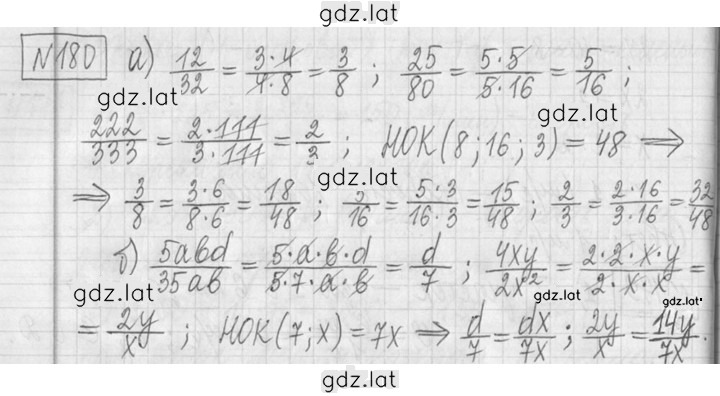 gdz.lat
№180 а) 12/32 = 3·4/4·8 = 3/8 ; 25/80 = 5·5/5·16 = 5/16 ;
gdz.lat
gdz.lat
222/333 = 2·111/3·111 = 2/3 ; НОК(8;16;3) = 48 ⇒
gdz.lat
⇒ 3/8 = 3·6/8·6 = 18/48 ; 5/16 = 5·3/16·3 = 15/48 ; 2/3 = 2·16/3·16 = 32/48
б) 5abd/35ab = 5·a·b·d/5·7·a·b = d/7 ; 4xy/2x² = 2·2·x·y/2·x·x =
gdz.lat
gdz.lat
gdz.lat
= 2y/x ; НОК(7;x) = 7x ⇒ d/7 = dx/7x ; 2y/x = 14y/7x .
gdz.lat